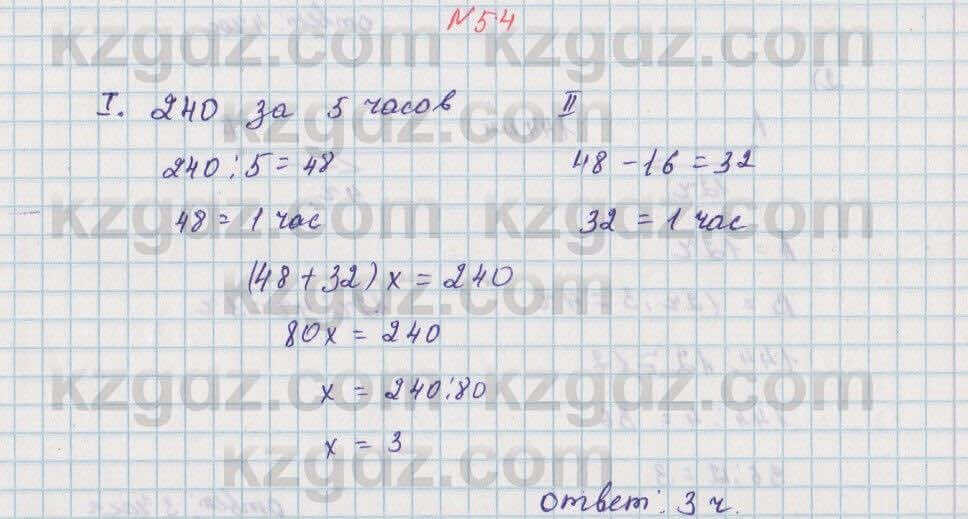 №54
I. 240 за 5 часов II
240:5=48 48-16=32
48=1 час 32=1 час
(48+32)x=240
80x=240
x=240:80
x=3
ответ: 3 ч.
kzgdz.com
kzgdz.com
kzgdz.com
kzgdz.com
kzgdz.com
kzgdz.com
kzgdz.com
kzgdz.com
kzgdz.com